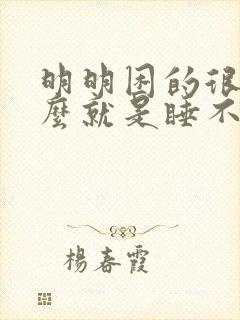 明明困的很
麼就是睡不
楊春霞